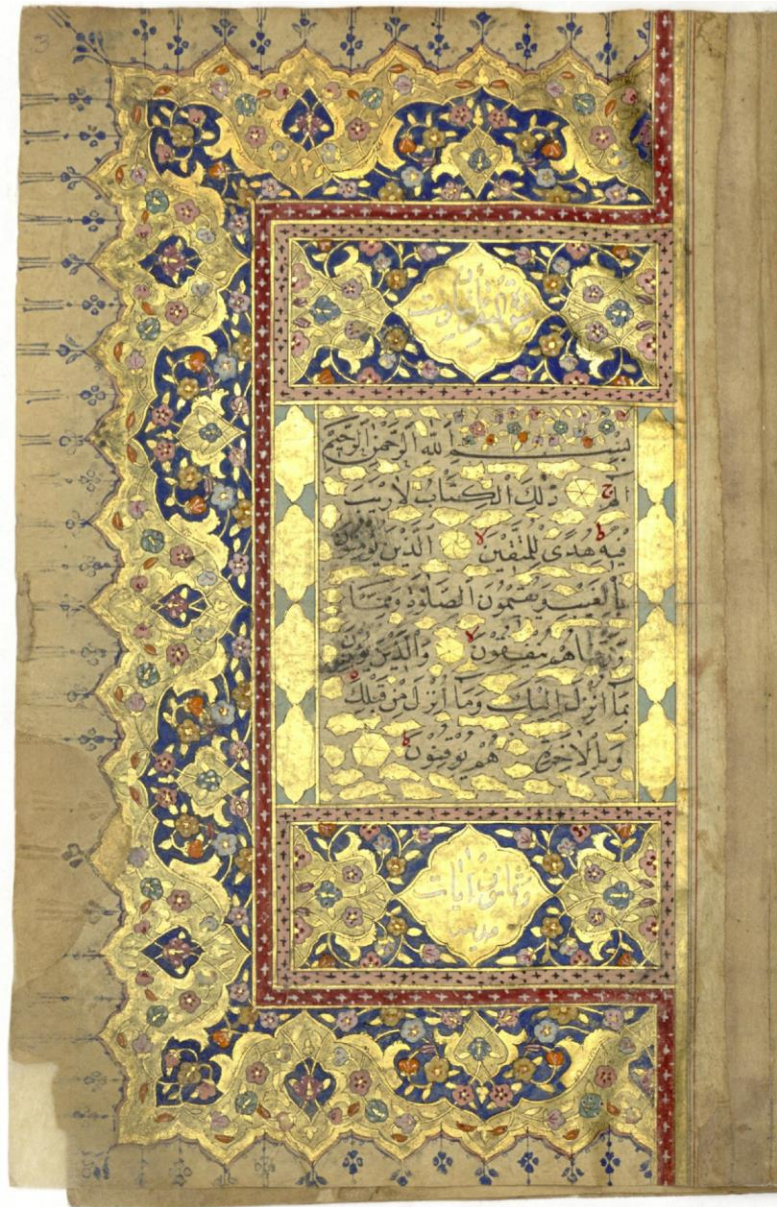 سورة البقرة
بِسْمِ اللهِ الرَّحْمٰنِ الرَّحِيمِ
الم ذٰلِكَ الْكِتَابُ لَا رَيْبَ
فِيهِ هُدًى لِلْمُتَّقِينَ الَّذِينَ يُؤْمِنُونَ
بِالْغَيْبِ وَيُقِيمُونَ الصَّلٰوةَ وَمِمَّا
رَزَقْنَاهُمْ يُنْفِقُونَ وَالَّذِينَ يُؤْمِنُونَ
بِمَا أُنْزِلَ إِلَيْكَ وَمَا أُنْزِلَ مِنْ قَبْلِكَ
وَبِالْآخِرَةِ هُمْ يُوقِنُونَ
وثمانون آيات
مدنية